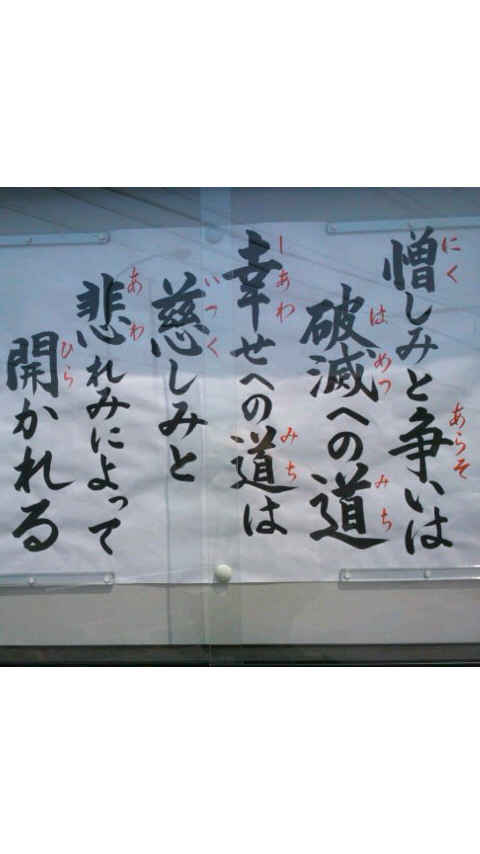 憎しみと争いは
にく
あらそ
破滅への道
はめつ
みち
幸せへの道は
しあわ
みち
慈しみと
いつく
悲れみによって
あわ
開かれる
ひら